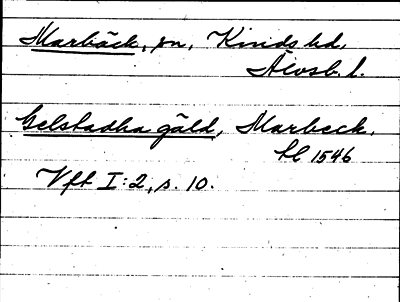 Marbäck, sn, Kinds hd.
Älvsb. l.
Gelstadha gäld, Marbeck.
hh 1546
Vft I:2, s. 10.